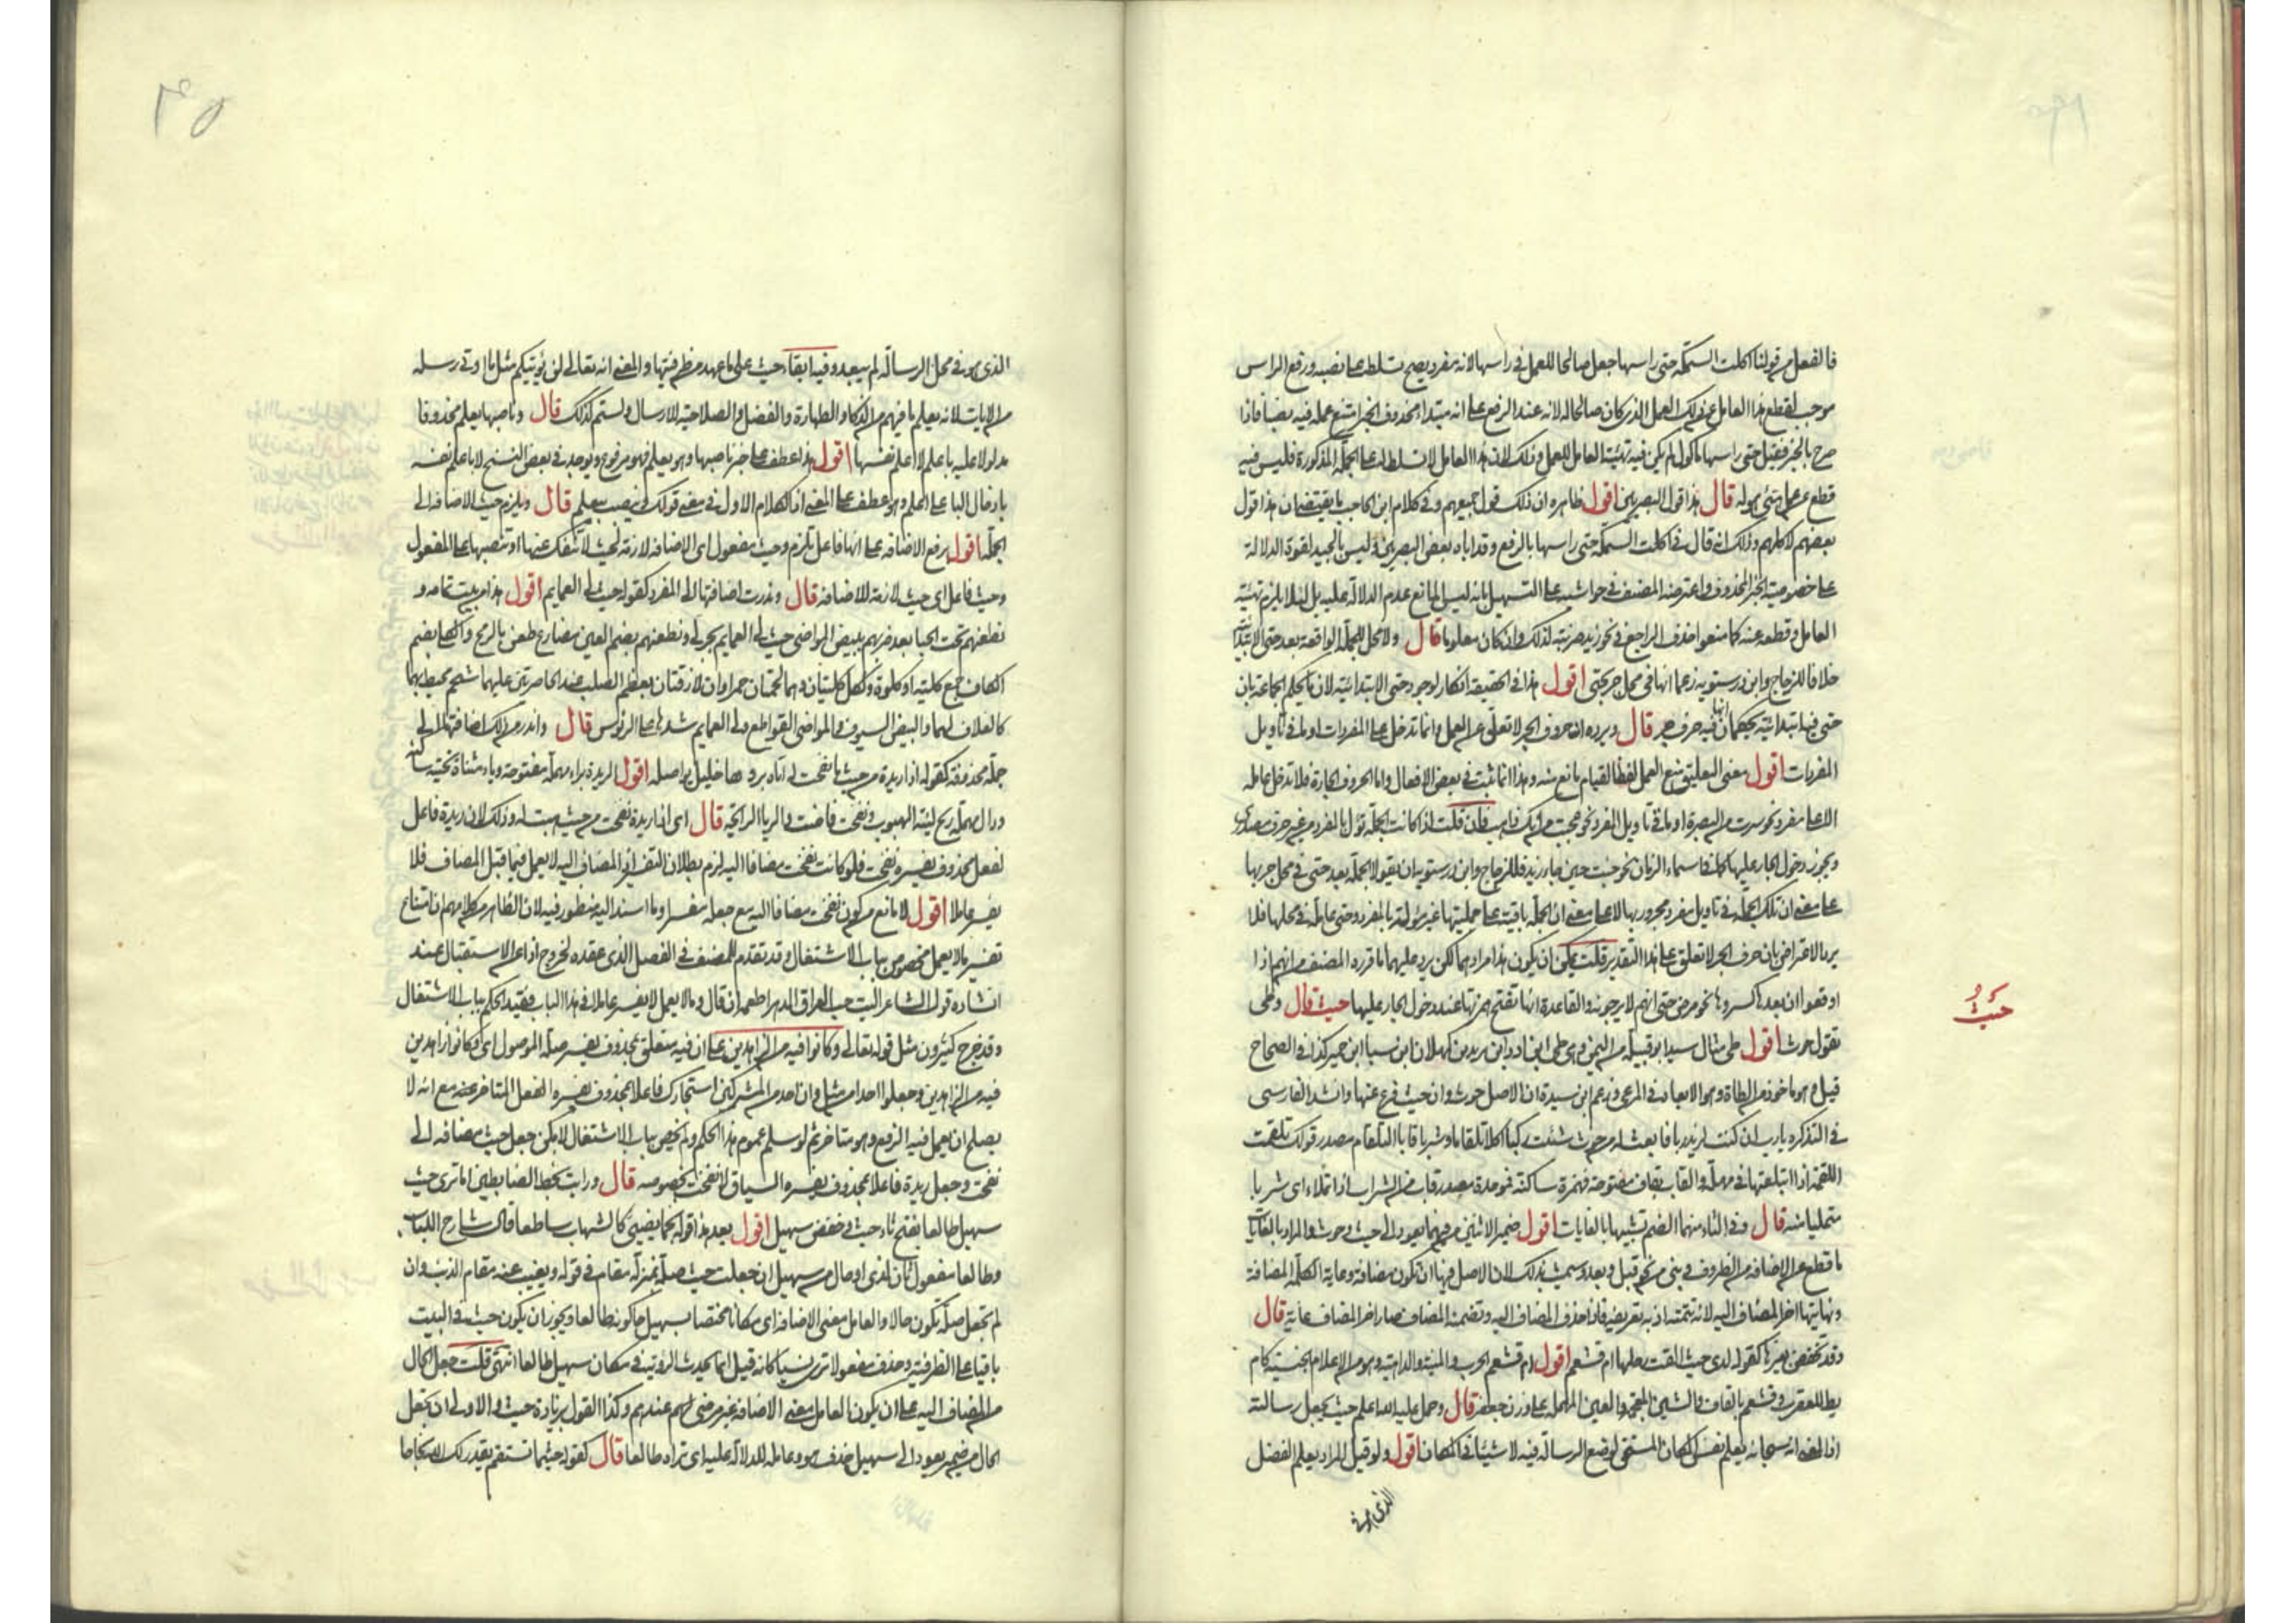 فالفعل من قولنا اكلت السمكة حتى راسها جعل صالحا للعمل في راسها لانه مفرد يصح تسلطه عليه نصبه ورفع الراس
موجب لقطع هذا العامل عن ذلك العمل الذي كان صالحا له لانه عند الرفع على انه مبتدا محذوف الخبر امتنع عمله فيه بضا فاذا
صرح بالخبر فقيل حتى راسها ماكول لم يكن فيه تهيئة العامل للعمل وذلك لان هذا العامل لا تسلط له على الجملة المذكورة فليس فيه
قطع عن عمل شئ هو له قال هذا قول البصريين اقول ظاهره ان ذلك قول جميعهم وفي كلام ابن الحاجب ما يقتضي ان هذا قول
بعضهم لا كلهم وذلك انه قال في اكلت السمكة حتى راسها بالرفع وقد اباه بعض البصريين وليس بالجيد لقوة الدلالة
على خصوصية الخبر المحذوف واعترضه المصنف في حواشيه على التسهيل بانه ليس المانع عدم الدلالة عليه بل لئلا يلزم تهيئة
العامل وقطعه عنه كما منعوا حذف الراجع في نحو زيد ضربته لذلك وان كان معلوما قال ولا محل للجملة الواقعة بعد حتى الابتدائية
خلافا للزجاج وابن درستويه زعما انها في محل جر بحتى اقول هذا في الحقيقة انكار لوجود حتى الابتدائية لان ما يحكم الجماعة بان
حتى فيها ابتدائية يحكمان انها فيه حرف جر قال ويرده ان حروف الجر لا تعلق عن العمل وانما تدخل على المفردات او ما في تاويل
المفردات اقول معنى التعليق منع العمل لفظا لقيام مانع منه وهذا انما ثبت في بعض الافعال واما الحروف الجارة فلا تدخل عاملة
الا على مفرد نحو سرت من البصرة او ما في تاويل المفرد نحو عجبت من انك قايم فان قلت اذا كانت الجملة تؤل بالمفرد من غير حرف مصدري
ويجوز دخول الجار عليها كما في اسماء الزمان نحو جئت حين جاء زيد فللزجاج وابن درستويه ان يقولا الجملة بعد حتى في محل جر بها
على معنى ان تلك الجملة في تاويل مفرد مجرور بها لا على معنى ان الجملة باقية على جمليتها غير مؤولة بالمفرد وحتى عاملة في محلها فلا
يرد الاعتراض بان حرف الجر لا تعلق على هذا التقدير قلت يمكن ان يكون هذا مرادهما لكن يرد عليهما ما قرره المصنف من انهم اذا
اوقعوا ان بعدها كسروها نحو مرض حتى انهم لا يرجونه والقاعدة انها تفتح همزتها عند دخول الجار عليها حيث قال وطي
تقول حوث اقول طي مثال سيد ابو قبيلة من اليمن وهو طي ابن ادد ابن زيد بن كهلان ابن سبا ابن حمير كذا في الصحاح
قيل وهو ماخوذ من الطاة وهو الابعاد في المرعى وزعم ابن سيدة ان الاصل حوث وان حيث فرع عنها وانشد الفارسي
في التذكره يا رب ان كنت لزيد ربا فابعث له من حوث شئت ركبا اكلا تلقاما وشربا قابا التلقام مصدر قولك تلقمت
اللقمة اذا ابتلعتها في مهلة والقاب بقاف مفتوحة فهمزة ساكنة فموحدة مصدر قاب من الشراب اذا تملا اي شربا
متمليا منه قال وفي الثاء منهما الضم تشبيها بالغايات اقول ضمير الاثنين من منهما يعود الى حيث وحوث والمراد بالغايات
ما قطع عن الاضافة من الظروف وبني من نحو قبل وبعد وسميت بذلك لان الاصل فيها ان تكون مضافة وغاية الكلمة المضافة
ونهايتها اخر المضاف اليه لانه تتمته اذ به تعريفه فاذا حذف المضاف اليه وتضمنه المضاف صار اخر المضاف غاية قال
وقد تخفض بغيرها كقوله لدى حيث القت رحلها ام قشعم اقول ام قشعم الحرب والمنية والداهية وهو من الاعلام الجنسية كام
عريط للعقرب وقشعم بالقاف والشين المعجمة والعين المهملة على وزن جعفر قال وحمل عليه الله اعلم حيث يجعل رسالته
اذ المعنى انه سبحانه يعلم نفس المكان المستحق لوضع الرسالة فيه لا شيئا في المكان اقول ولو قيل المراد يعلم الفضل
الذي هو في
حيث
الذي هو في محل الرسالة لم يبعد وفيه ابقاء حيث على ما عهد من ظرفيتها والمعنى انه تعالى لن يؤتيكم مثل ما اوتي رسله
من الايات لانه يعلم ما فيهم من الذكاء والطهارة والفضل والصلاحية للارسال ولستم كذلك قال وناصبها يعلم محذوفا
مدلولا عليه باعلم لا اعلم نفسها اقول هذا عطف على خبر ناصبها وهو يعلم فهو مرفوع ويوجد في بعض النسخ لا باعلم نفسه
بادخال البا على اعلم وهو عطف على المعنى اذ الكلام الاول في معنى قولك وينصب بيعلم قال ويلزم حيث الاضافة الى
الجملة اقول برفع الاضافة على انها فاعل يلزم وحيث مفعول اي الاضافة لازمة لحيث لا تنفك عنها او تنصبها على المفعول
وحيث فاعل اي حيث لازمة للاضافة قال وندرت اضافتها الى المفرد كقوله حيث لي العمايم اقول هذا من بيت تمامه و
نطعنهم تحت الحبا بعد ضربهم ببيض المواضي حيث لي العمايم يجر لي ونطعنهم بضم العين مضارع طعن بالرمح والكلى بضم
الكاف جمع كلية او كلوة ولكل كليتان وهما لحمتان حمراوان لازقتان بعظم الصلب عند الخاصرتين عليهما شحم محيط بهما
كالغلاف لهما والبيض السيوف والمواضي القواطع ولي العمايم شدها على الرؤس قال واندر من ذلك اضافتها الى
جملة محذوفة كقوله اذا ريدة من حيث ما نفحت له اتاه برياها خليل يواصله اقول الريدة براء مهملة مفتوحة وياء مثناة تحتية ساكنة
ودال مهملة ريح لينة الهبوب ونفحت فاحت والريا الرائحة قال اي اذا ريدة نفحت من حيث هبت له وذلك لان ريدة فاعل
لفعل محذوف يفسره نفحت فلو كانت نفحت مضافا اليه لزم بطلان التفسير اذ المضاف اليه لا يعمل فيما قبل المضاف فلا
يفسر عاملا اقول لا مانع من كون نفحت مضافا اليه مع جعله مفسرا وما استند اليه منظور فيه لان الظاهر من كلامهم ان امتناع
تفسير ما لا يعمل مخصوص بباب الاشتغال وقد تقدم للمصنف في الفصل الذي عقده لخروج اذا عن الاستقبال عند
انشاده قول الشاعر اليت حب العراق الدهر اطعمه ان قال وما لا يعمل لا يفسر عاملا في هذا الباب فقيد الحكم بباب الاشتغال
وقد خرج كثيرون مثل قوله تعالى وكانوا فيه من الزاهدين على ان فيه متعلق بمحذوف يفسره صلة الموصول اي وكانوا زاهدين
فيه من الزاهدين وجعلوا احدا من مثل وان احد من المشركين استجارك فاعلا بمحذوف يفسره الفعل المتاخر عنه مع انه لا
يصلح ان يعمل فيه الرفع وهو متاخر ثم لو سلم عموم هذا الحكم ولم يخص بباب الاشتغال لامكن جعل حيث مضافة الى
نفحت وجعل ريدة فاعلا بمحذوف يفسره السياق لا نفحت بخصوصه قال ورايت بخط الضابطين اما ترى حيث
سهيل طالعا بفتح ثاء حيث وخفض سهيل اقول بعد هذا قوله نجما يضيئ كالشهاب ساطعا قال شارح اللباب
وطالعا مفعول ثان لذى او حال من سهيل ان جعلت حيث صلة بمنزلة مقام في قوله ونفيت عنه مقام الذئب وان
لم تجعل صلة تكون حالا والعامل معنى الاضافة اي مكانا مختصا بسهيل حال كونه طالعا ويجوز ان يكون حيث في البيت
باقيا على الظرفية وحذف مفعولا ترى نسيا كانه قيل اما تحدث الرؤية في مكان سهيل طالعا انتهى قلت جعل الحال
من المضاف اليه على ان يكون العامل معنى الاضافة غير مرضي لهم عندهم وكذا القول بزيادة حيث والاولى ان تجعل
الحال من ضمير يعود الى سهيل حذف هو وعامله للدلالة عليه اي تراه طالعا قال كقوله حيثما تستقم يقدر لك الله نجاحا